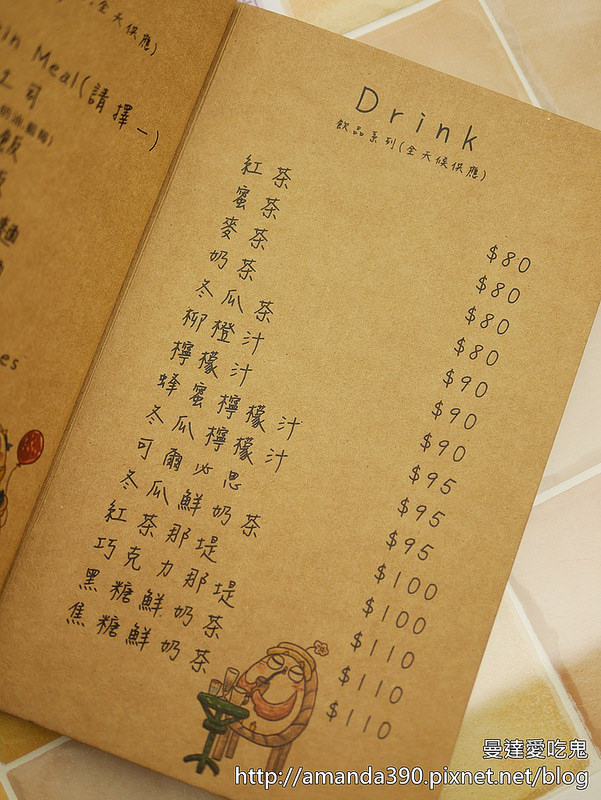 全天候供應)
in Meal(請擇一)
司
飯
麵
es
Drink
飲品系列(全天候供應)
紅茶 $80
蜜茶 $80
麥茶 $80
奶茶 $80
冬瓜茶 $90
柳橙汁 $90
檸檬汁 $90
蜂蜜檸檬汁 $95
冬瓜檸檬汁 $95
可爾必思 $95
冬瓜鮮奶茶 $100
紅茶那堤 $100
巧克力那堤 $110
黑糖鮮奶茶 $110
焦糖鮮奶茶 $110
曼達愛吃鬼
http://amanda390.pixnet.net/blog